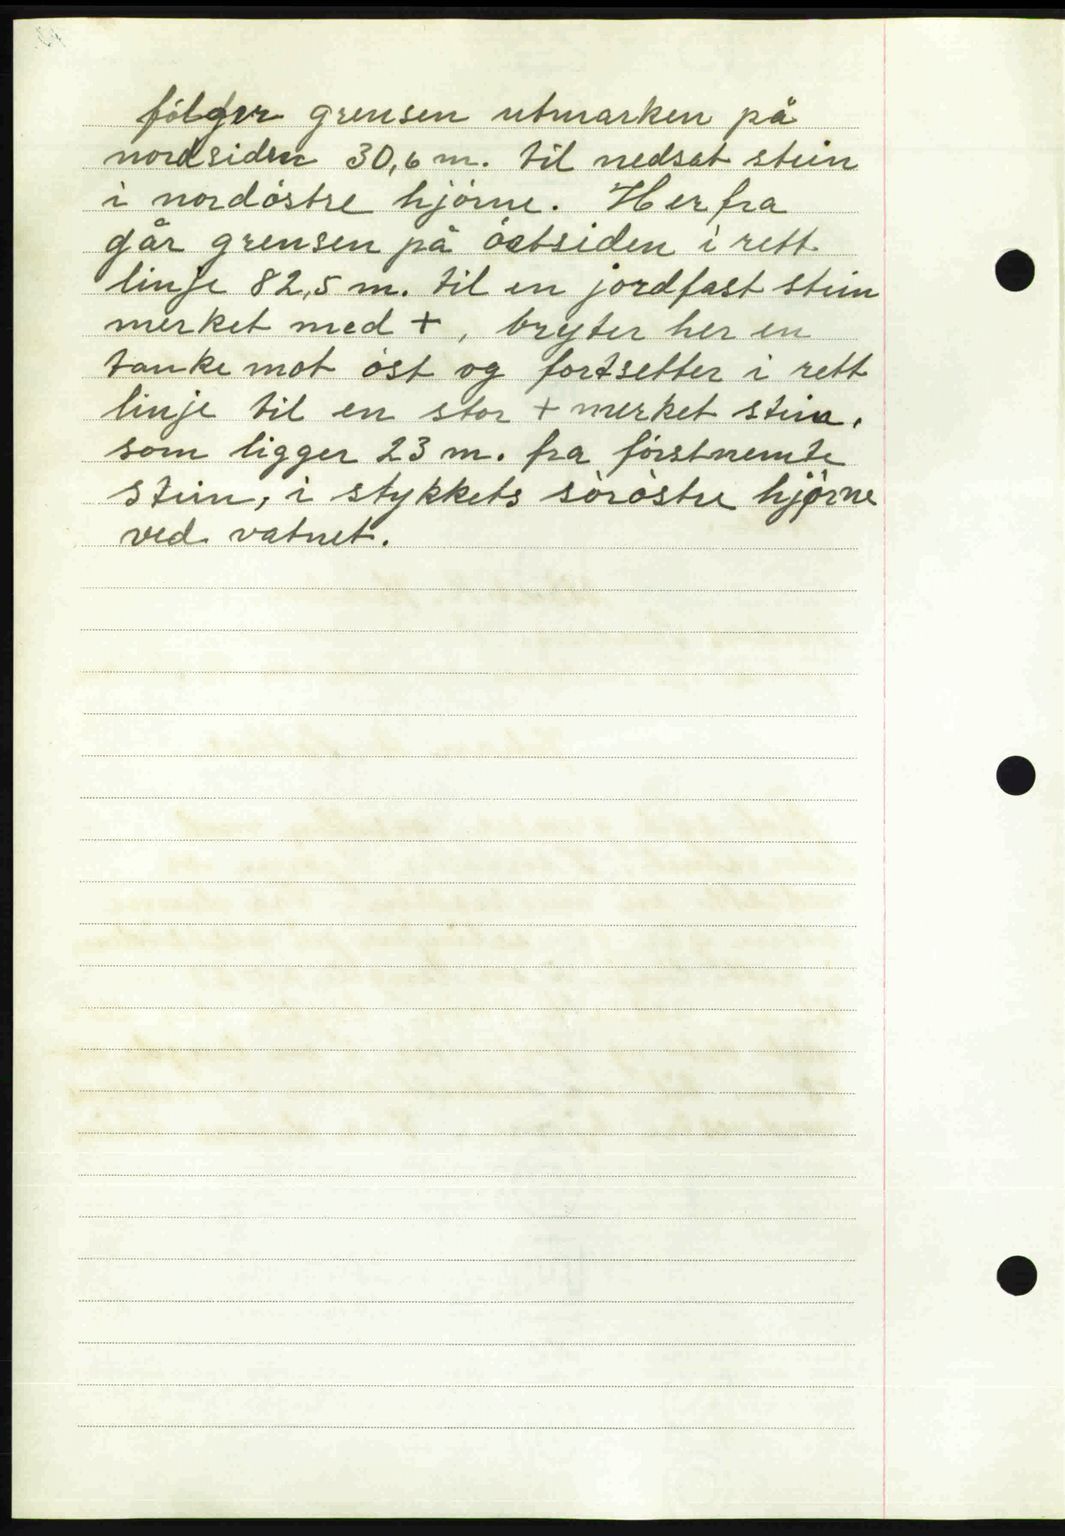 følger grensen utmarken på
nordsiden 30,6 m. til nedsat stein
i nordóstre hjórne. Her fra
går grensen på óstsiden i rett
linje 82,5 m. til en jordfast stein
merket med +, bryter her en
tanke mot óst og fortsetter i rett
linje til en stor + merket stein,
som ligger 23 m. fra fórstnemte
stein, i stykkets sóróstre hjórne
ved vatnet.